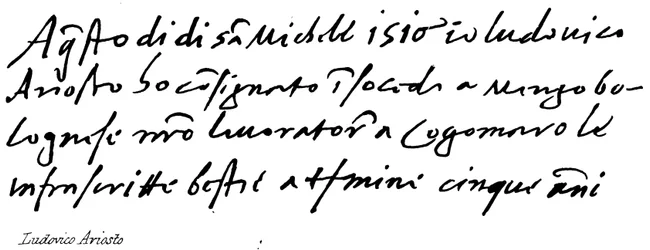 A q̃sto di di sã Michele 1510 io ludovico
Ariosto ho cõsignato ĩ soceda a Mengo bo-
lognese nr̃o lavorator̃ a Cogomaro le
infrascritte bestie a tr̃mine cinque ãni
Ludovico Ariosto